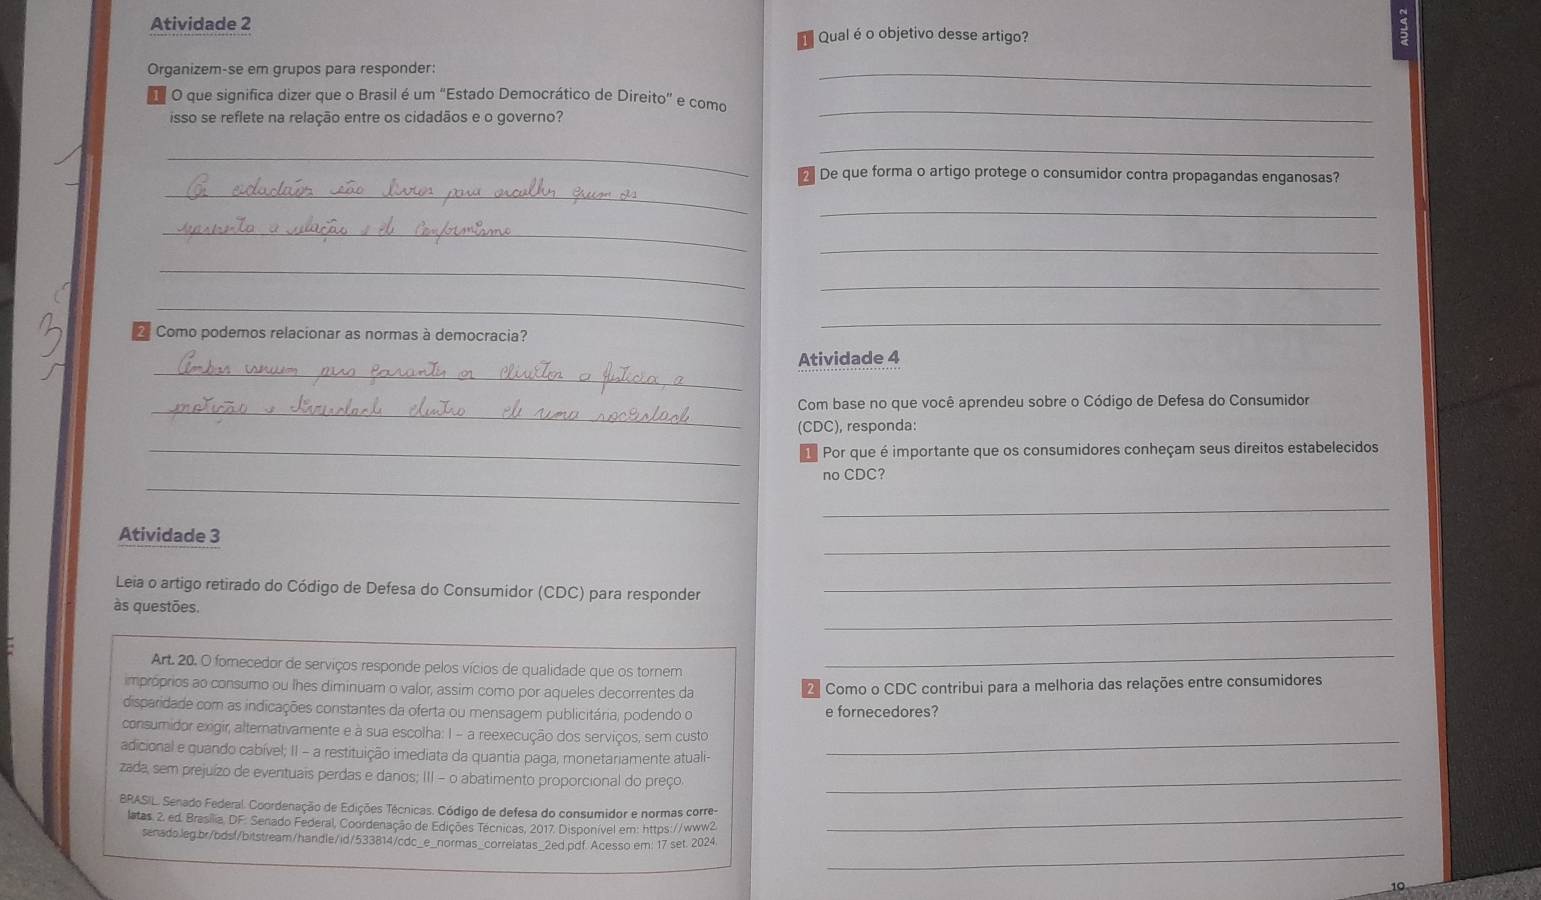 Atividade 2
Organizem-se em grupos para responder:
1 O que significa dizer que o Brasil é um "Estado Democrático de Direito" e como
isso se reflete na relação entre os cidadãos e o governo?
Os cidadãos são livres para escolher quem os
representa a relação e de conformismo
2 Como podemos relacionar as normas à democracia?
Ambas visam garantir os direitos a justicia, a
e liverdade dentro de uma sociedade
Atividade 3
Leia o artigo retirado do Código de Defesa do Consumidor (CDC) para responder
às questões.
Art. 20. O fornecedor de serviços responde pelos vícios de qualidade que os tornem
impróprios ao consumo ou lhes diminuam o valor, assim como por aqueles decorrentes da
disparidade com as indicações constantes da oferta ou mensagem publicitária, podendo o
consumidor exigir, alternativamente e à sua escolha: I – a reexecução dos serviços, sem custo
adicional e quando cabível; II – a restituição imediata da quantia paga, monetariamente atuali-
zada, sem prejuízo de eventuais perdas e danos; III – o abatimento proporcional do preço.
BRASIL. Senado Federal. Coordenação de Edições Técnicas. Código de defesa do consumidor e normas corre-
latas. 2. ed. Brasília, DF: Senado Federal, Coordenação de Edições Técnicas, 2017. Disponível em: https://www2.
senado.leg.br/bdsf/bitstream/handle/id/533814/cdc_e_normas_correlatas_2ed.pdf. Acesso em: 17 set. 2024.
AULA 2
1 Qual é o objetivo desse artigo?
2 De que forma o artigo protege o consumidor contra propagandas enganosas?
Atividade 4
Com base no que você aprendeu sobre o Código de Defesa do Consumidor
(CDC), responda:
1 Por que é importante que os consumidores conheçam seus direitos estabelecidos
no CDC?
2 Como o CDC contribui para a melhoria das relações entre consumidores
e fornecedores?
19